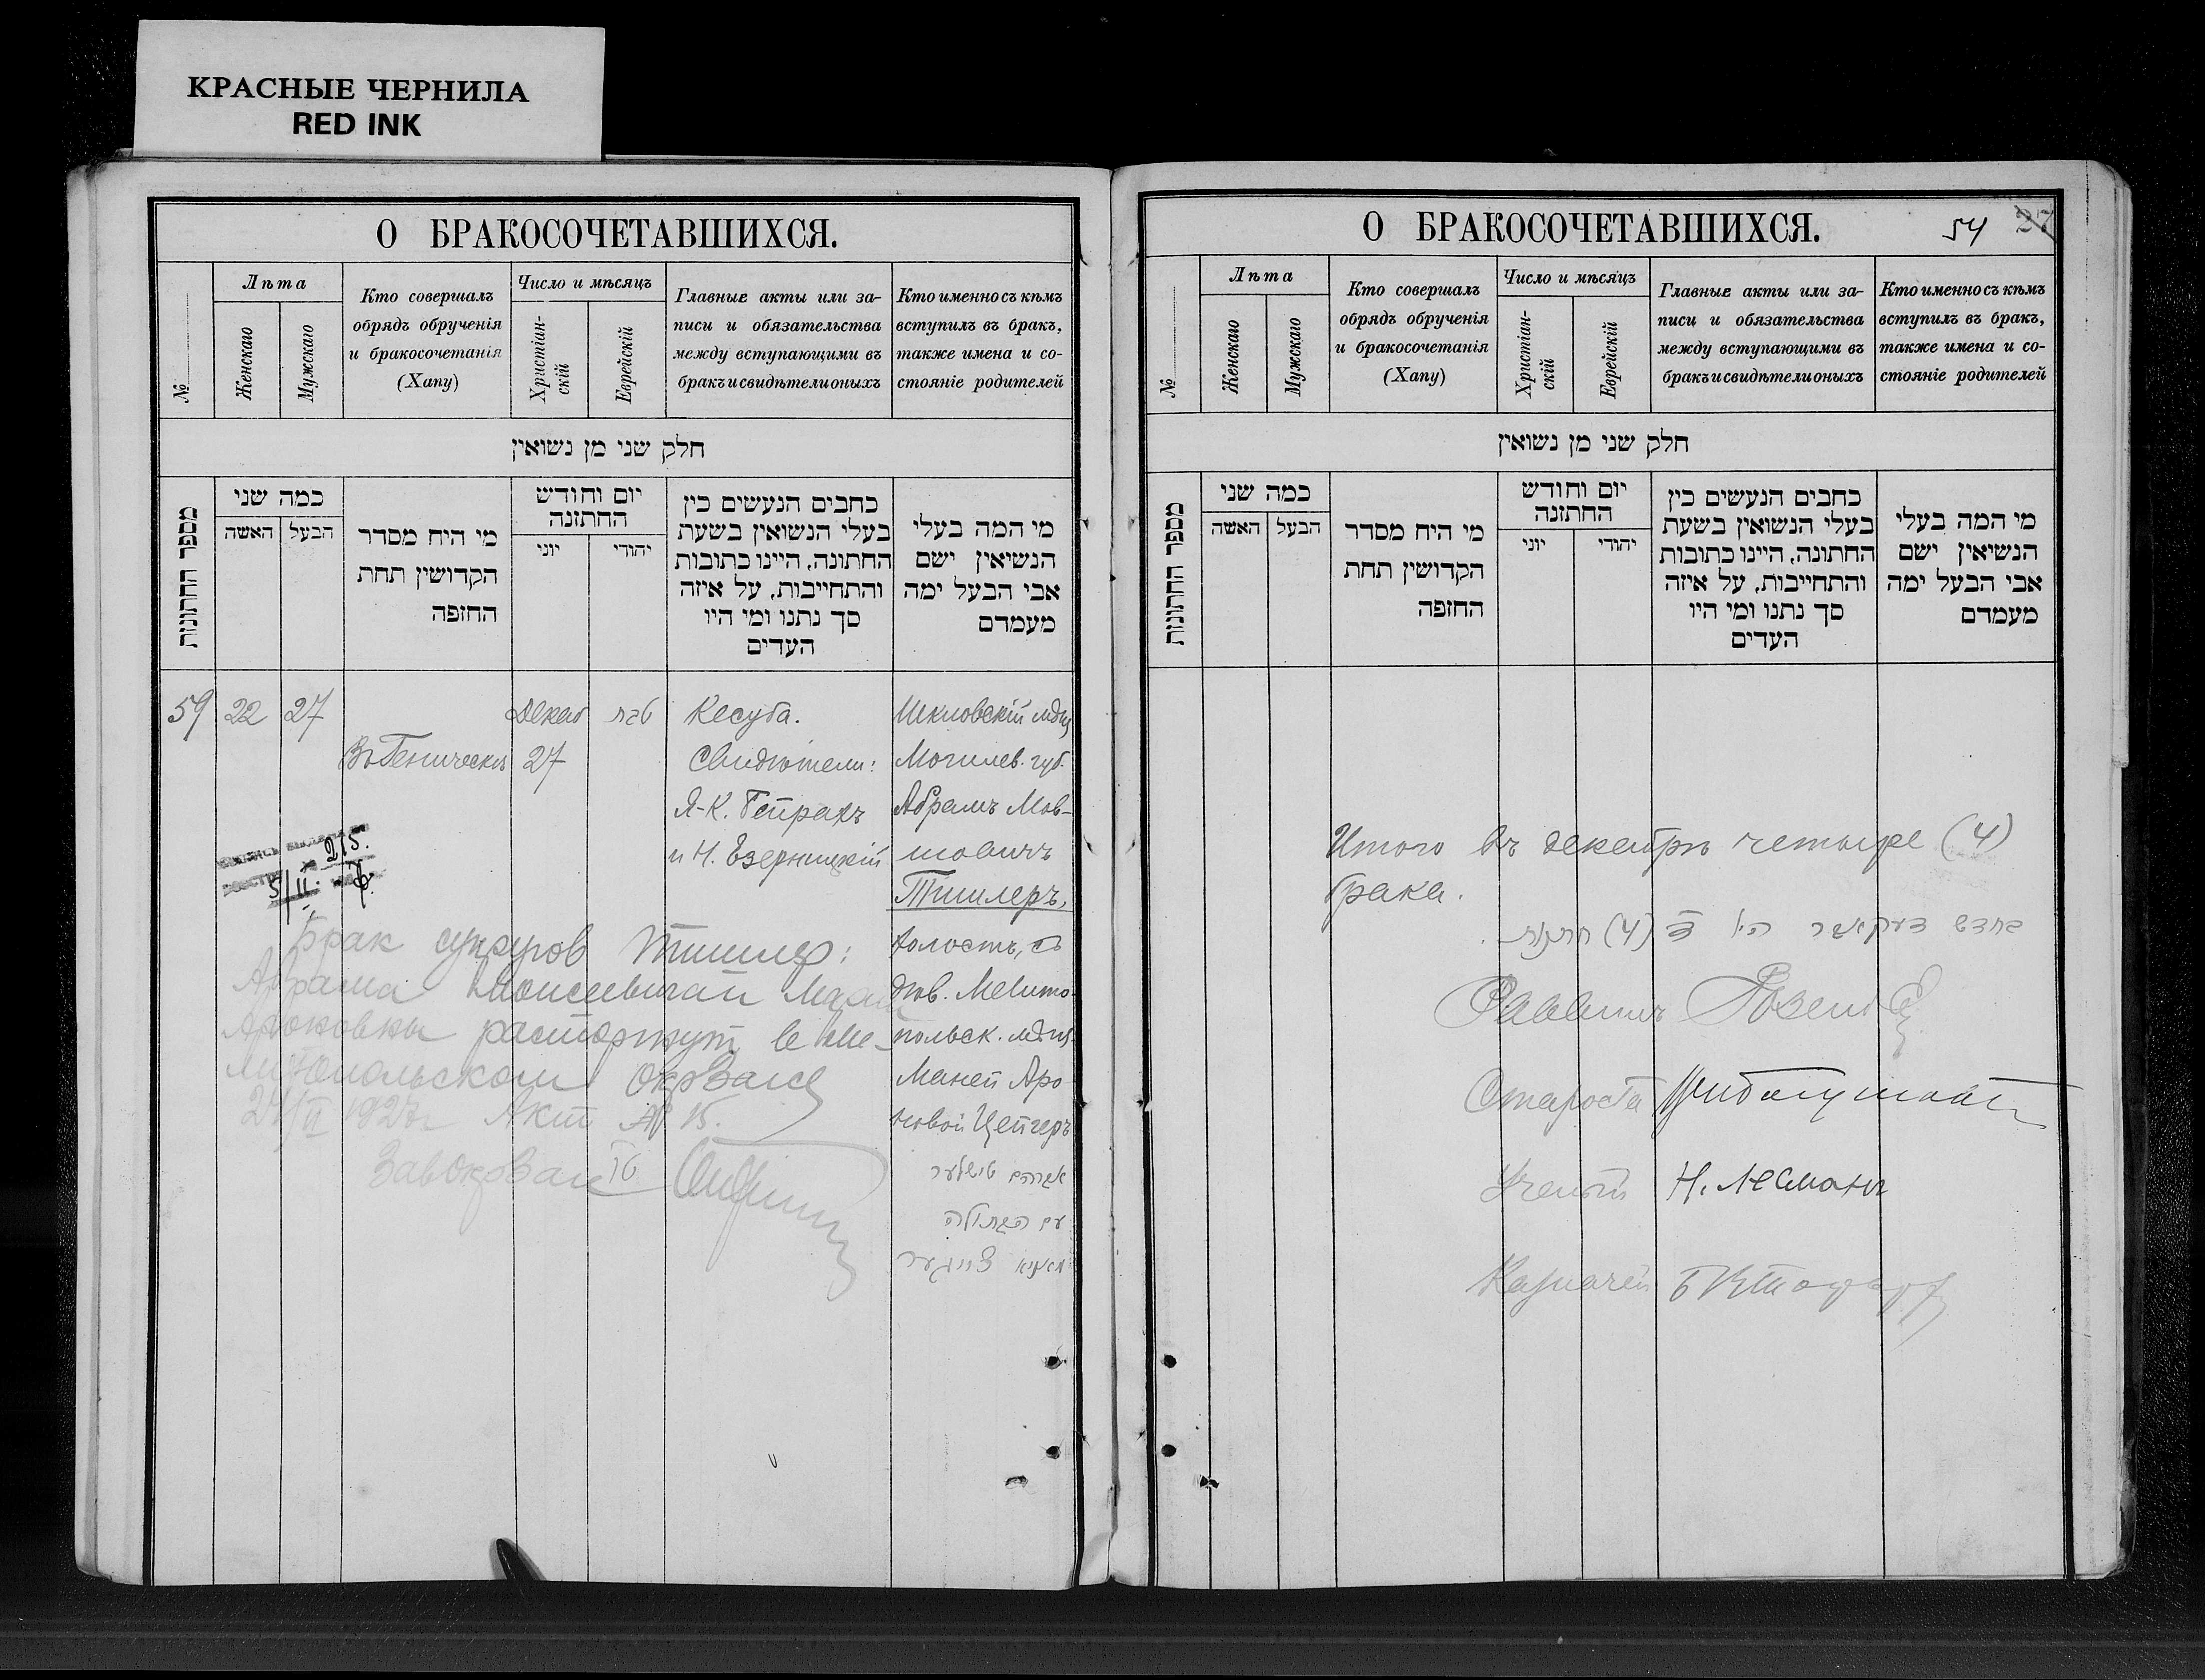 КРАСНЫЕ ЧЕРНИЛА
RED INK
О БРАКОСОЧЕТАВШИХСЯ.
№
Лѣта
Женскаго
Мужскаго
Кто совершалъ
обрядъ обрученія
и бракосочетанія
(Хапу)
Число и мѣсяцъ
Христіан-
скій
Еврейскій
Главные акты или за-
писи и обязательства
между вступающими въ
бракъ и свидѣтели оныхъ
Кто именно съ кѣмъ
вступилъ въ бракъ,
также имена и со-
стояніе родителей
חלק שני מן נשואין
מספר החתונות
כמה שני
האשה
הבעל
מי היח מסדר
הקדושין תחת
החופה
יום וחודש
החתונה
יוני
יהודי
כחבים הנעשים כין
בעלי הנשואין בשעת
החתונה, היינו כתובות
והתחייבות, על איזה
סך נתנו ומי היו
העדים
מי המה בעלי
הנשיאין ישם
אבי הבעל ימה
מעמדם
59
22
27
Въ Геническѣ
Декаб
27
טבת
Кесуба.
Свидѣтели:
Я-К. Гетрахъ
и Н. Езерницкій
Шкловскій мѣщ
Могилев. губ.
Абрамъ Мов-
шовичъ
Тишлеръ,
холостъ, съ
дѣв. Мелито-
польск. мѣщ.
Маней Аро
новой Цейгеръ
אברהם טישלער
עם הבתולה
מאניא צייגער
215.
5/II
Брак супругов Тишлер:
Абрама Моисеевича и Мани
Ароновны расторгнут в Ме-
литопольском ОкрЗагсе
21/II 1927г Акт № 15.
ЗавОкрЗагс
О БРАКОСОЧЕТАВШИХСЯ.
54
27
№
Лѣта
Женскаго
Мужскаго
Кто совершалъ
обрядъ обрученія
и бракосочетанія
(Хапу)
Число и мѣсяцъ
Христіан-
скій
Еврейскій
Главные акты или за-
писи и обязательства
между вступающими въ
бракъ и свидѣтели оныхъ
Кто именно съ кѣмъ
вступилъ въ бракъ,
также имена и со-
стояніе родителей
חלק שני מן נשואין
מספר החתונות
כמה שני
האשה
הבעל
מי היח מסדר
הקדושין תחת
החופה
יום וחודש
החתונה
יוני
יהודי
כחבים הנעשים כין
בעלי הנשואין בשעת
החתונה, היינו כתובות
והתחייבות, על איזה
סך נתנו ומי היו
העדים
מי המה בעלי
הנשיאין ישם
אבי הבעל ימה
מעמדם
Итого въ декабрѣ четыре (4)
брака.
בחדש דעקאבר היו ד (4) חתנות.
Раввинъ
Староста
Ученый Н. Лесманъ
Казначей